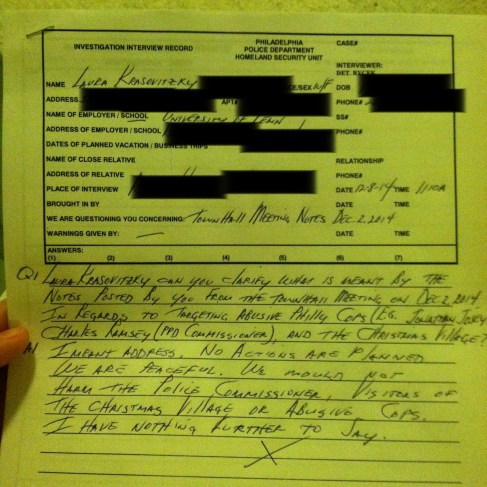 INVESTIGATION INTERVIEW RECORD
PHILADELPHIA
POLICE DEPARTMENT
HOMELAND SECURITY UNIT
CASE#
INTERVIEWER:
DET.
NAME LAURA KRASOVITZKY /SEX W/F DOB
ADDRESS APT# PHONE#
NAME OF EMPLOYER / SCHOOL UNIVERSITY OF PENN SS#
ADDRESS OF EMPLOYER / SCHOOL PHONE#
DATES OF PLANNED VACATION / BUSINESS TRIPS
NAME OF CLOSE RELATIVE RELATIONSHIP
ADDRESS OF RELATIVE PHONE#
PLACE OF INTERVIEW DATE 12-8-14 TIME 1110A
BROUGHT IN BY DATE TIME
WE ARE QUESTIONING YOU CONCERNING: TOWNHALL MEETING NOTES DEC. 2, 2014
WARNINGS GIVEN BY: — DATE TIME
ANSWERS:
(1) (2) (3) (4) (5) (6) (7)
Q1 LAURA KRASOVITZKY CAN YOU CLARIFY WHAT IS MEANT BY THE
NOTES POSTED BY YOU FROM THE TOWNHALL MEETING ON DEC 2, 2014
IN REGARDS TO TARGETING ABUSIVE PHILLY COPS (EG. JONATHAN JOSEY
CHARLES RAMSEY (PPD COMMISSIONER), AND THE CHRISTMAS VILLAGE?
A1 I MEANT ADDRESS. NO ACTIONS ARE PLANNED
WE ARE PEACEFUL. WE WOULD NOT
HARM THE POLICE COMMISSIONER, VISITORS OF
THE CHRISTMAS VILLAGE OR ABUSIVE COPS.
I HAVE NOTHING FURTHER TO SAY.
X